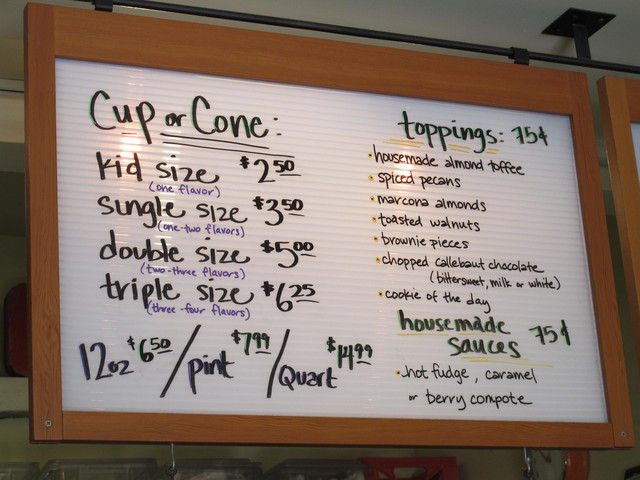 Cup or Cone:
kid size $2.50
(one flavor)
single size $3.50
(one-two flavors)
double size $5.00
(two-three flavors)
triple size $6.25
(three-four flavors)
12oz $6.50 / pint $7.99 / Quart $14.99
toppings: 75¢
• housemade almond toffee
• spiced pecans
• marcona almonds
• toasted walnuts
• brownie pieces
• chopped callebaut chocolate
(bittersweet, milk or white)
• cookie of the day
housemade
sauces 75¢
• hot fudge, caramel
or berry compote